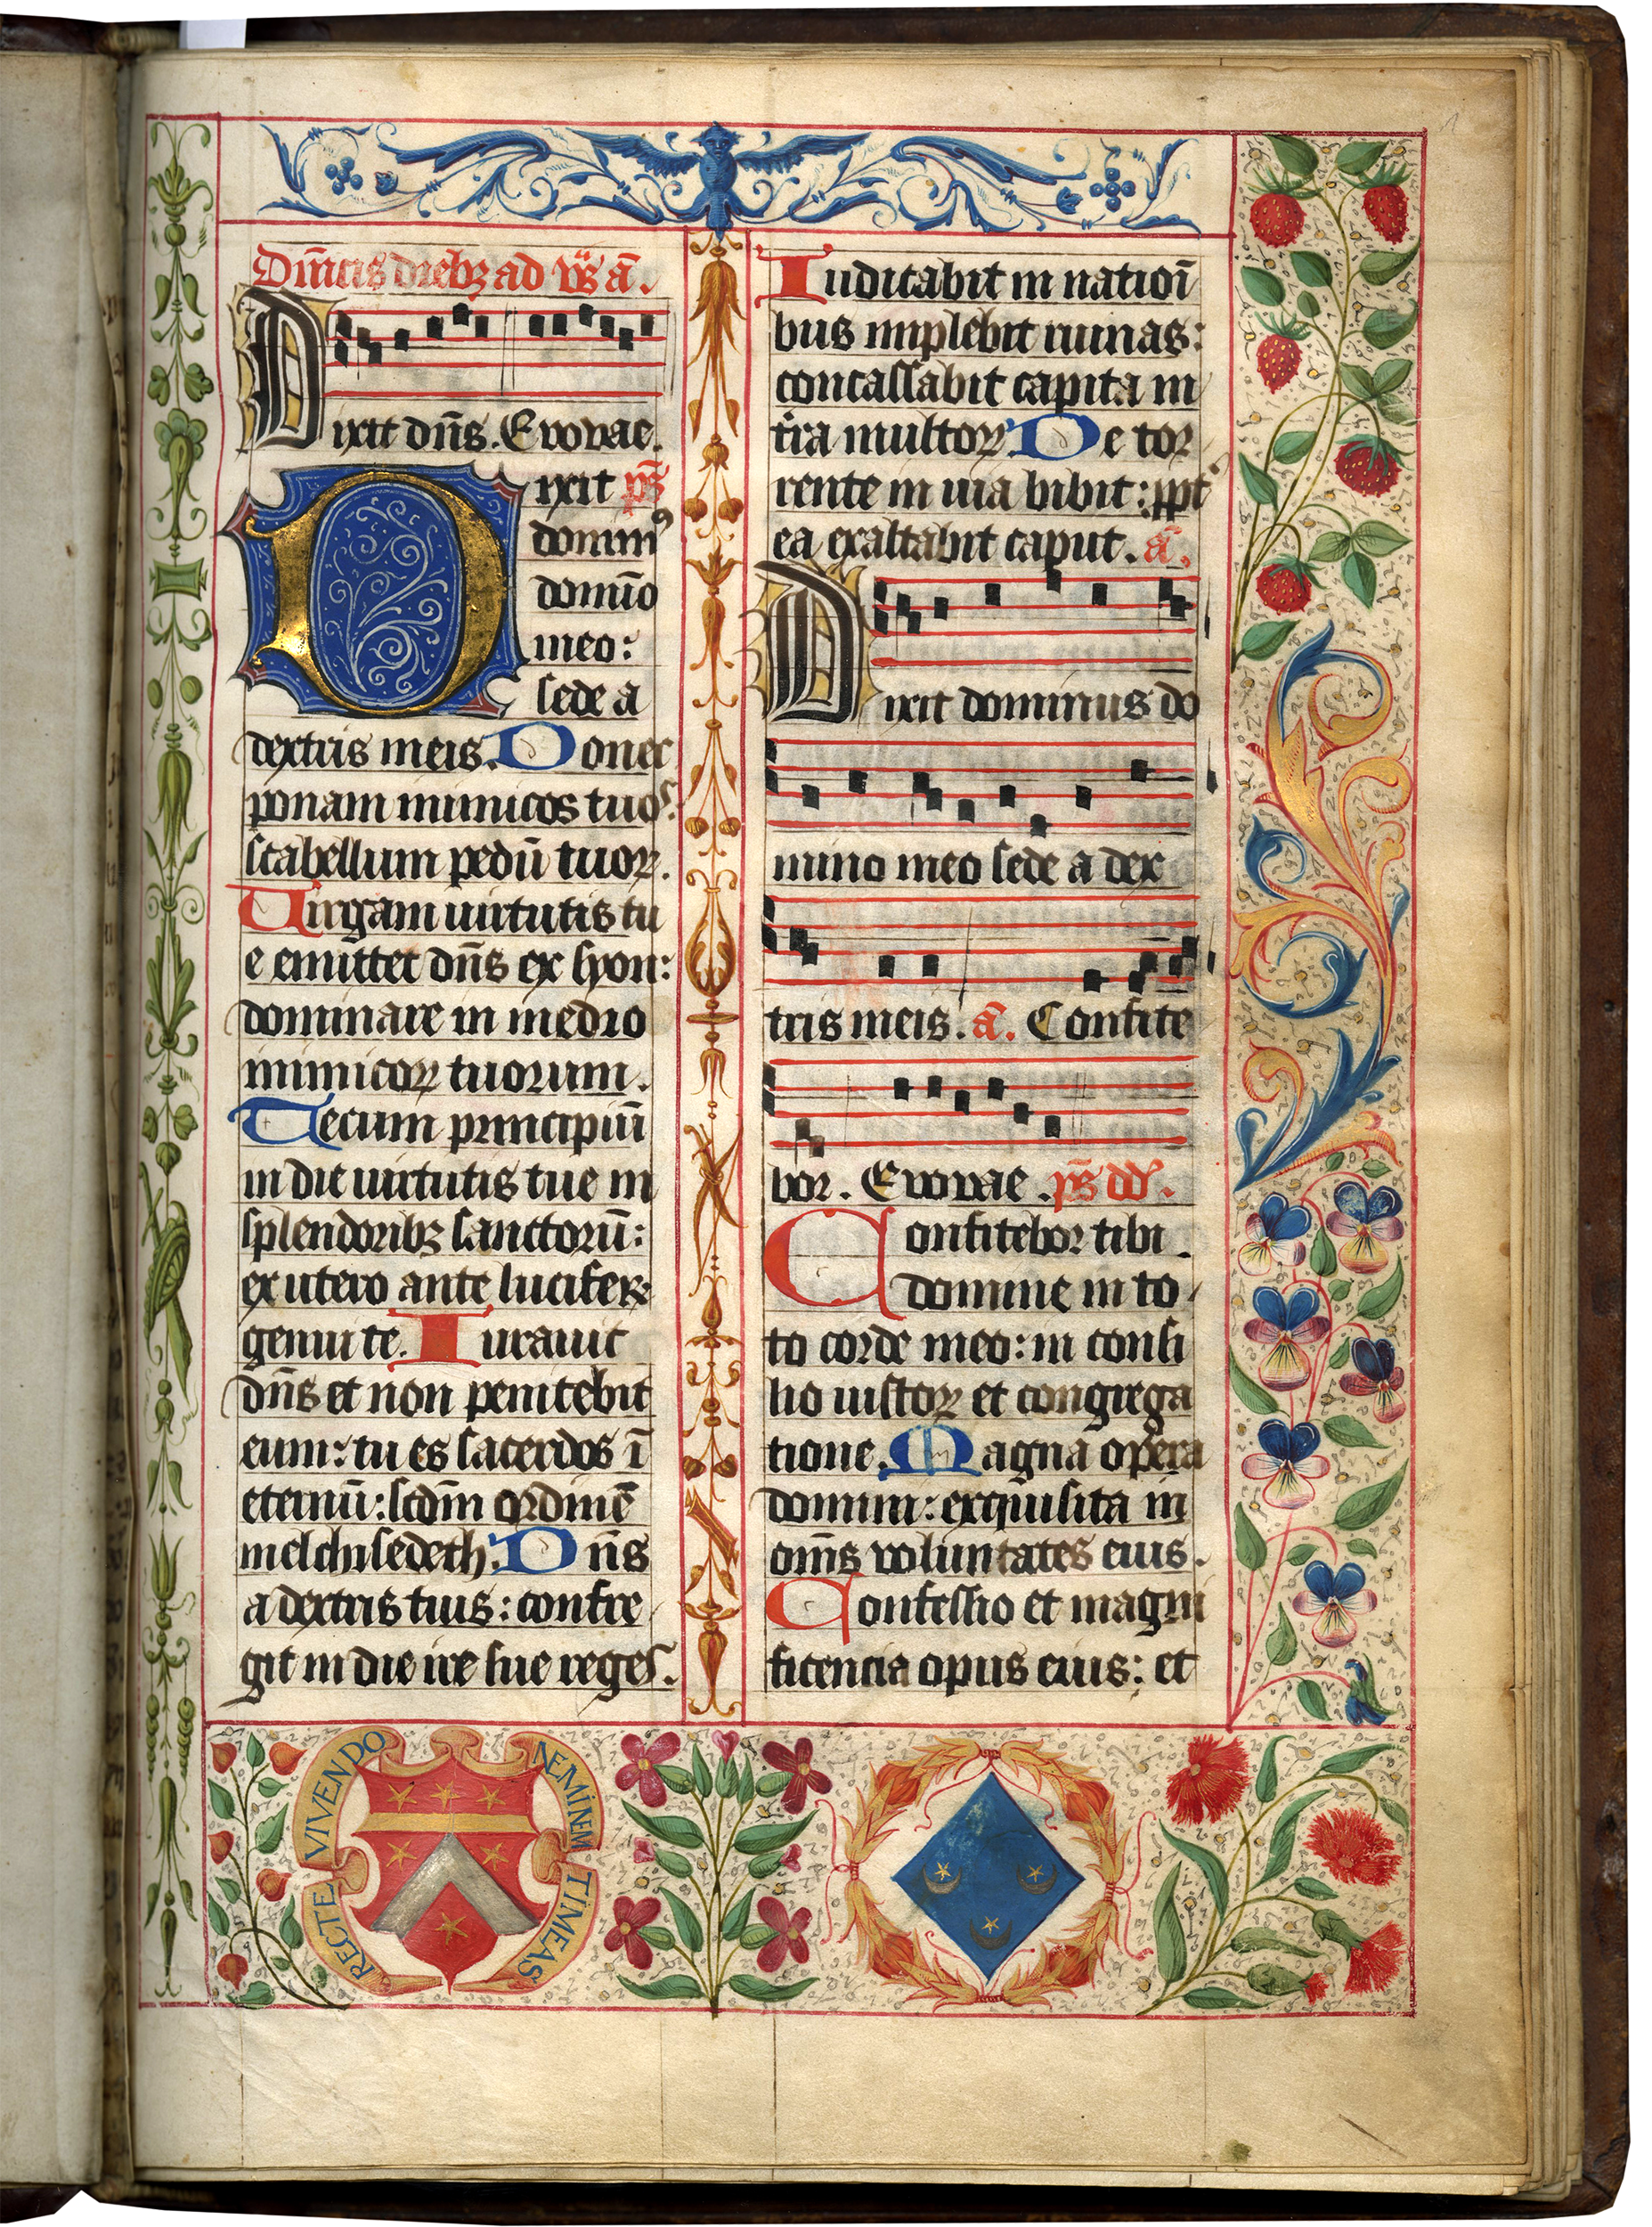 Dn̄icis diebꝫ ad vr̄s a᷃.
Dixit dn̄s. Evovae.
Dixit ps̄
domin⁹
domīo
meo:
sede a
dextris meis. Donec
ponam inimicos tuos:
scabellum pedū tuoꝝ.
Virgam uirtutis tu
e emittet dn̄s ex syon:
dominare in medio
inimicoꝝ tuorum.
Tecum principiū
in die uirtutis tue in
splendoribꝫ sanctorū:
ex utero ante luciferꝫ
genui te. Iurauit
dn̄s et non penitebit
eum: tu es sacerdos ī
eternū: scd̄m ordinē
melchisedech. Dn̄s
a dextris tuis: confre
git in die ire sue reges.
Iudicabit in natioī
bus implebit ruinas:
concassabit capita in
tr̄a multoꝝ. De tor
rente in uia bibit: ꝓpt
ea exaltabit caput. a᷃.
Dixit dominus do
mino meo sede a dex
tris meis. a᷃. Confite
bor. Evovae. ps̄ dd̄.
Confitebor tibi
domine in to
to corde meo: in consi
lio iustoꝝ et congrega
tione. Magna opera
domini: exquisita in
om̄s voluntates eius.
Confessio et magni
ficencia opus eius: et
RECTE VIVENDO NEMINEM TIMEAS